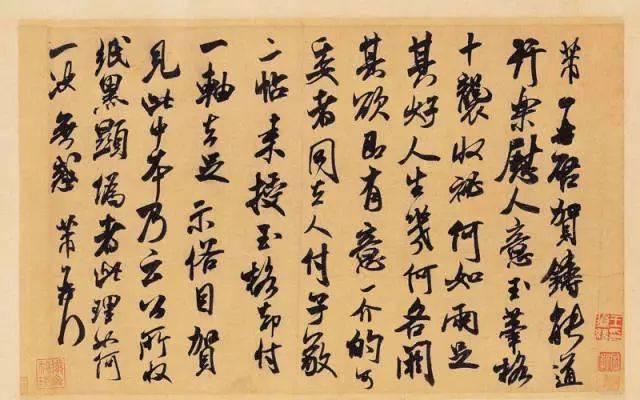 芾再啓賀鑄能道
行樂慰人意玉筆格
十襲收祕何如兩足
其好人生幾何各閼
其欲即有意一介的可
委者同去人付子敬
二帖來授玉格却付
一軸去足示俗目賀
見此中本乃云公所收
紙黑顯偽者此理如何
一決無惑 芾